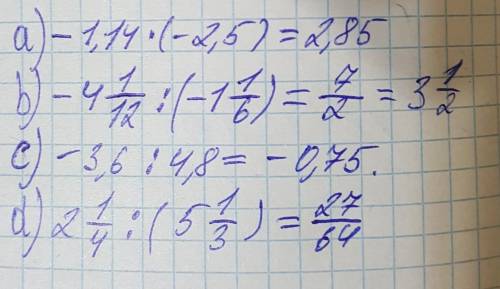 a) -1,14 · (-2,5) = 2,85
b) -4 1/12 : (-1 1/6) = 7/2 = 3 1/2
c) -3,6 : 4,8 = -0,75.
d) 2 1/4 : (5 1/3) = 27/64